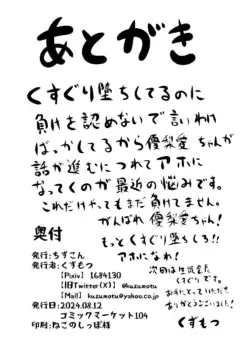 あとがき
くすぐり堕ちしてるのに
負けを認めないで言いわけ
ばっかしてるから優梨愛ちゃんが
話が進むにつれてアホに
なってくのが最近の悩みです。
これだけやってもまだ負けてません。
がんばれ優梨愛ちゃん!
もっとくすぐり堕ちしろ!!
アホになれ!
次回は生徒会長
くすぐりです。
お手にとっていただき
ありがとうございました!
くすもつ
奥付
発行:ちずこん
発行者:くすもつ
【Pixiv】 1684130
【旧Twitter(X)】 @kuzumotu
【Mail】 kuzumotu@yahoo.co.jp
発行日:2024.08.12
コミックマーケット104
印刷:ねこのしっぽ様